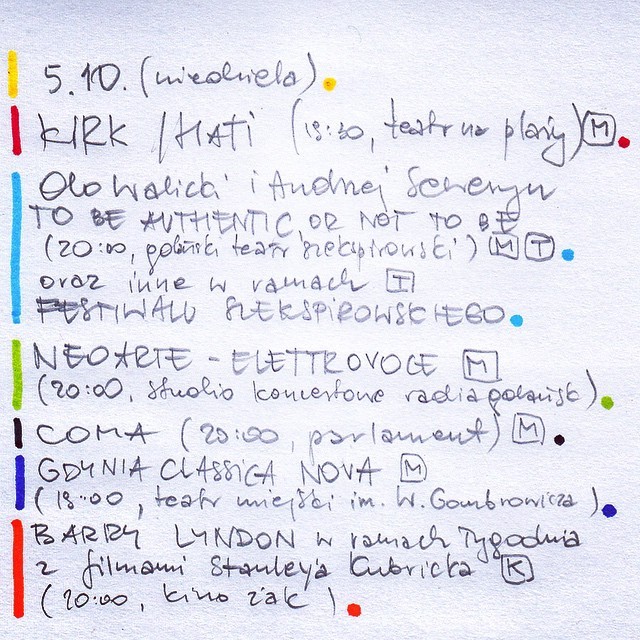 5.10. (niedziela)
KIRK / HATI (19:30, teatr na plaży) M
Olo Walicki i Andrzej Seweryn
TO BE AUTHENTIC OR NOT TO BE
(20:00, gdański teatr szekspirowski) M T
oraz inne w ramach T
FESTIWALU SZEKSPIROWSKIEGO
NEOARTE - ELETTROVOCE M
(20:00, studio koncertowe radia gdańsk)
COMA (20:00, parlament) M
GDYNIA CLASSICA NOVA M
(19:00, teatr miejski im. W. Gombrowicza)
BARRY LYNDON w ramach Tygodnia
z filmami Stanley'a Kubricka K
(20:00, kino żak)